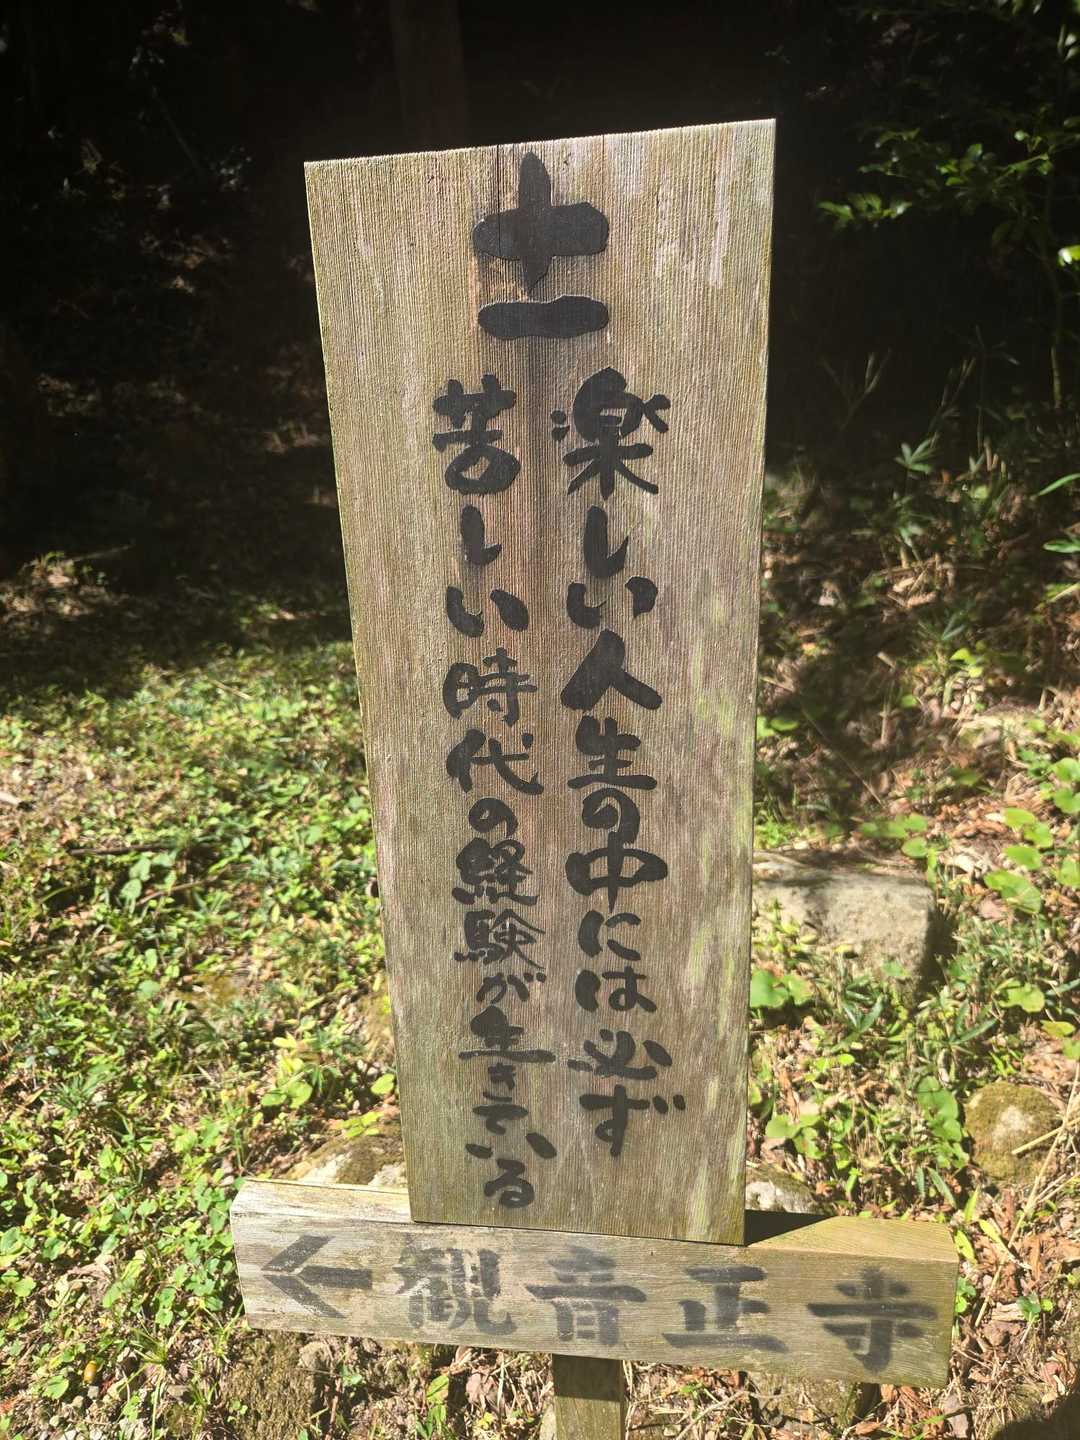 十一
楽しい人生の中には必ず
苦しい時代の経験が生きている
←観音正寺